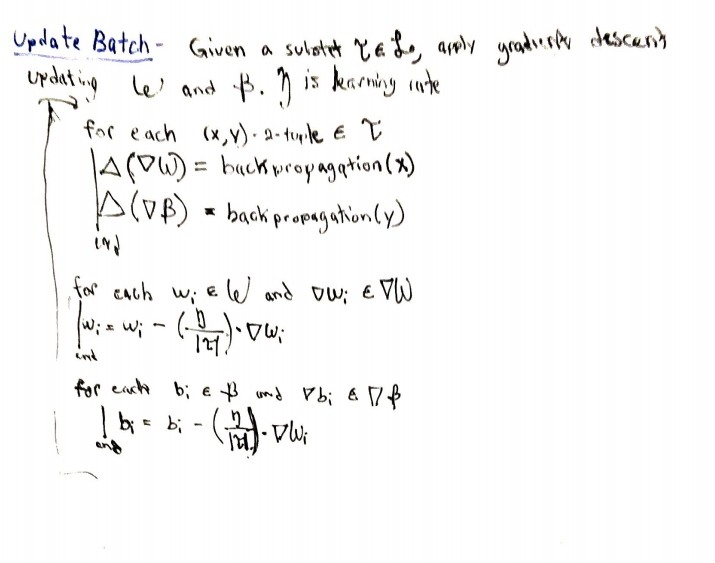 Update Batch - Given a subset τ ∈ ℒ, apply gradients descent
updating W and β. η is learning rate
for each (x,y)-2-tuple ∈ τ
Δ(∇W) = backpropagation(x)
Δ(∇β) = backpropagation(y)
end
for each wᵢ ∈ W and ∇wᵢ ∈ ∇W
wᵢ = wᵢ - (η/|τ|)·∇wᵢ
end
for each bᵢ ∈ β and ∇bᵢ ∈ ∇β
bᵢ = bᵢ - (η/|τ|)·∇wᵢ
end